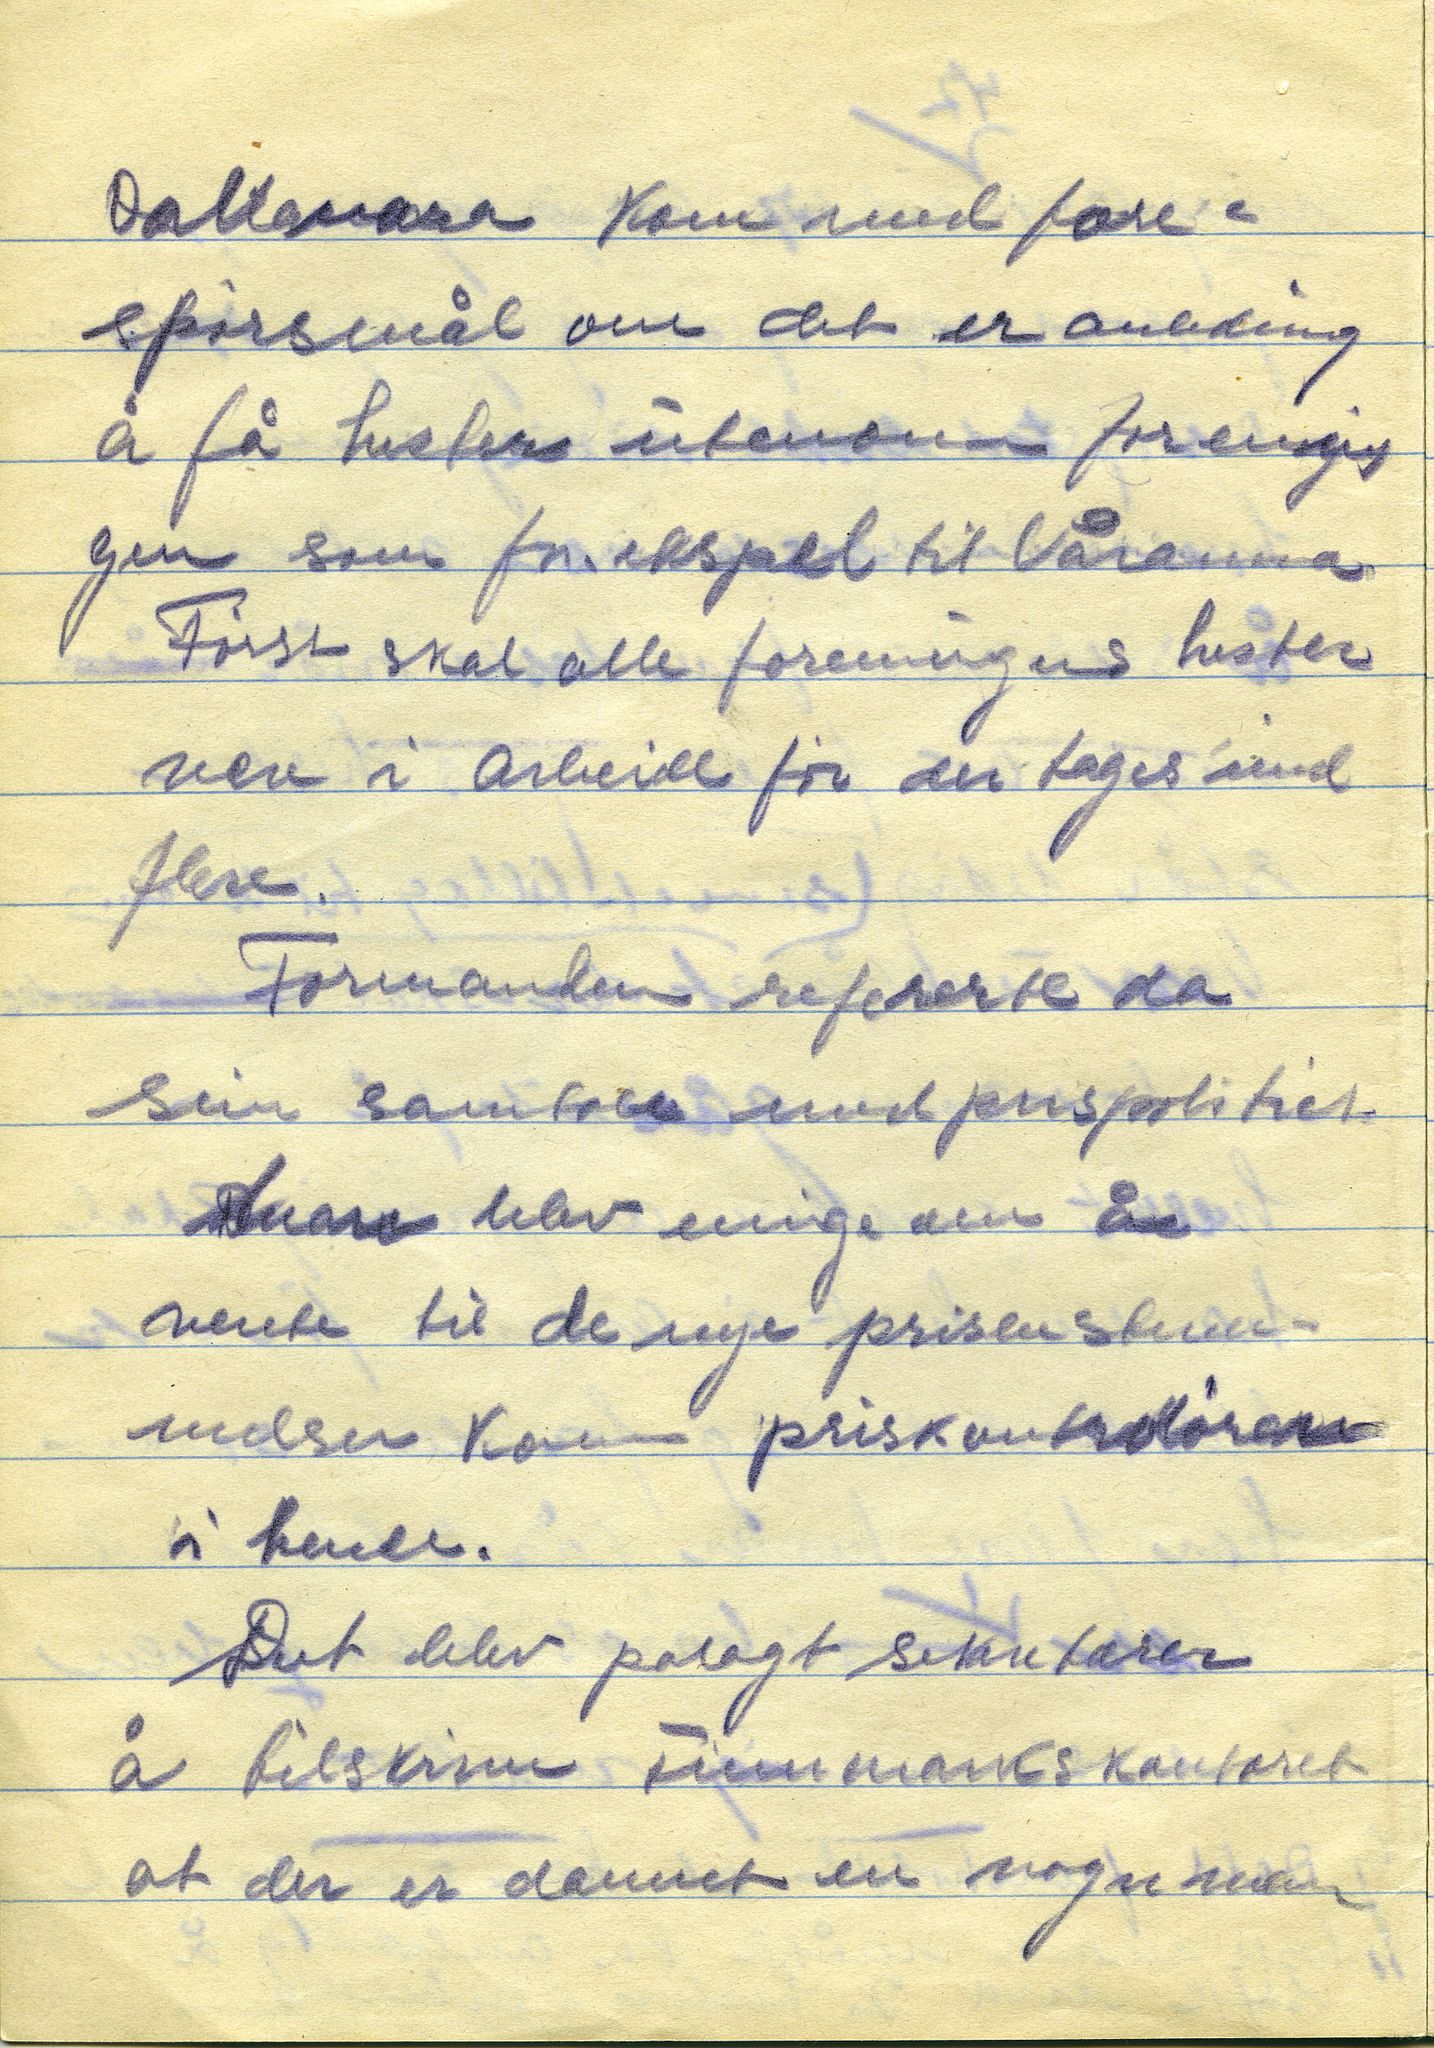 Daltevara Kom med fore-
spörsmål om det er anleding
å få hester ütenom forenig
gen som for. ekspel til Våranna
Först skal alle foreningens hester
vere i arbeide för der tages ind
flere.
Formanden refererte da
sin samtale med prispolitiet.
blev einige om å
vente til de nye prisenstem-
melser kom priskontrolören
i hende.
Det blev pålagt sekretæren
å tilskrive Finnmarkskontoret
at der er dannet en vognman